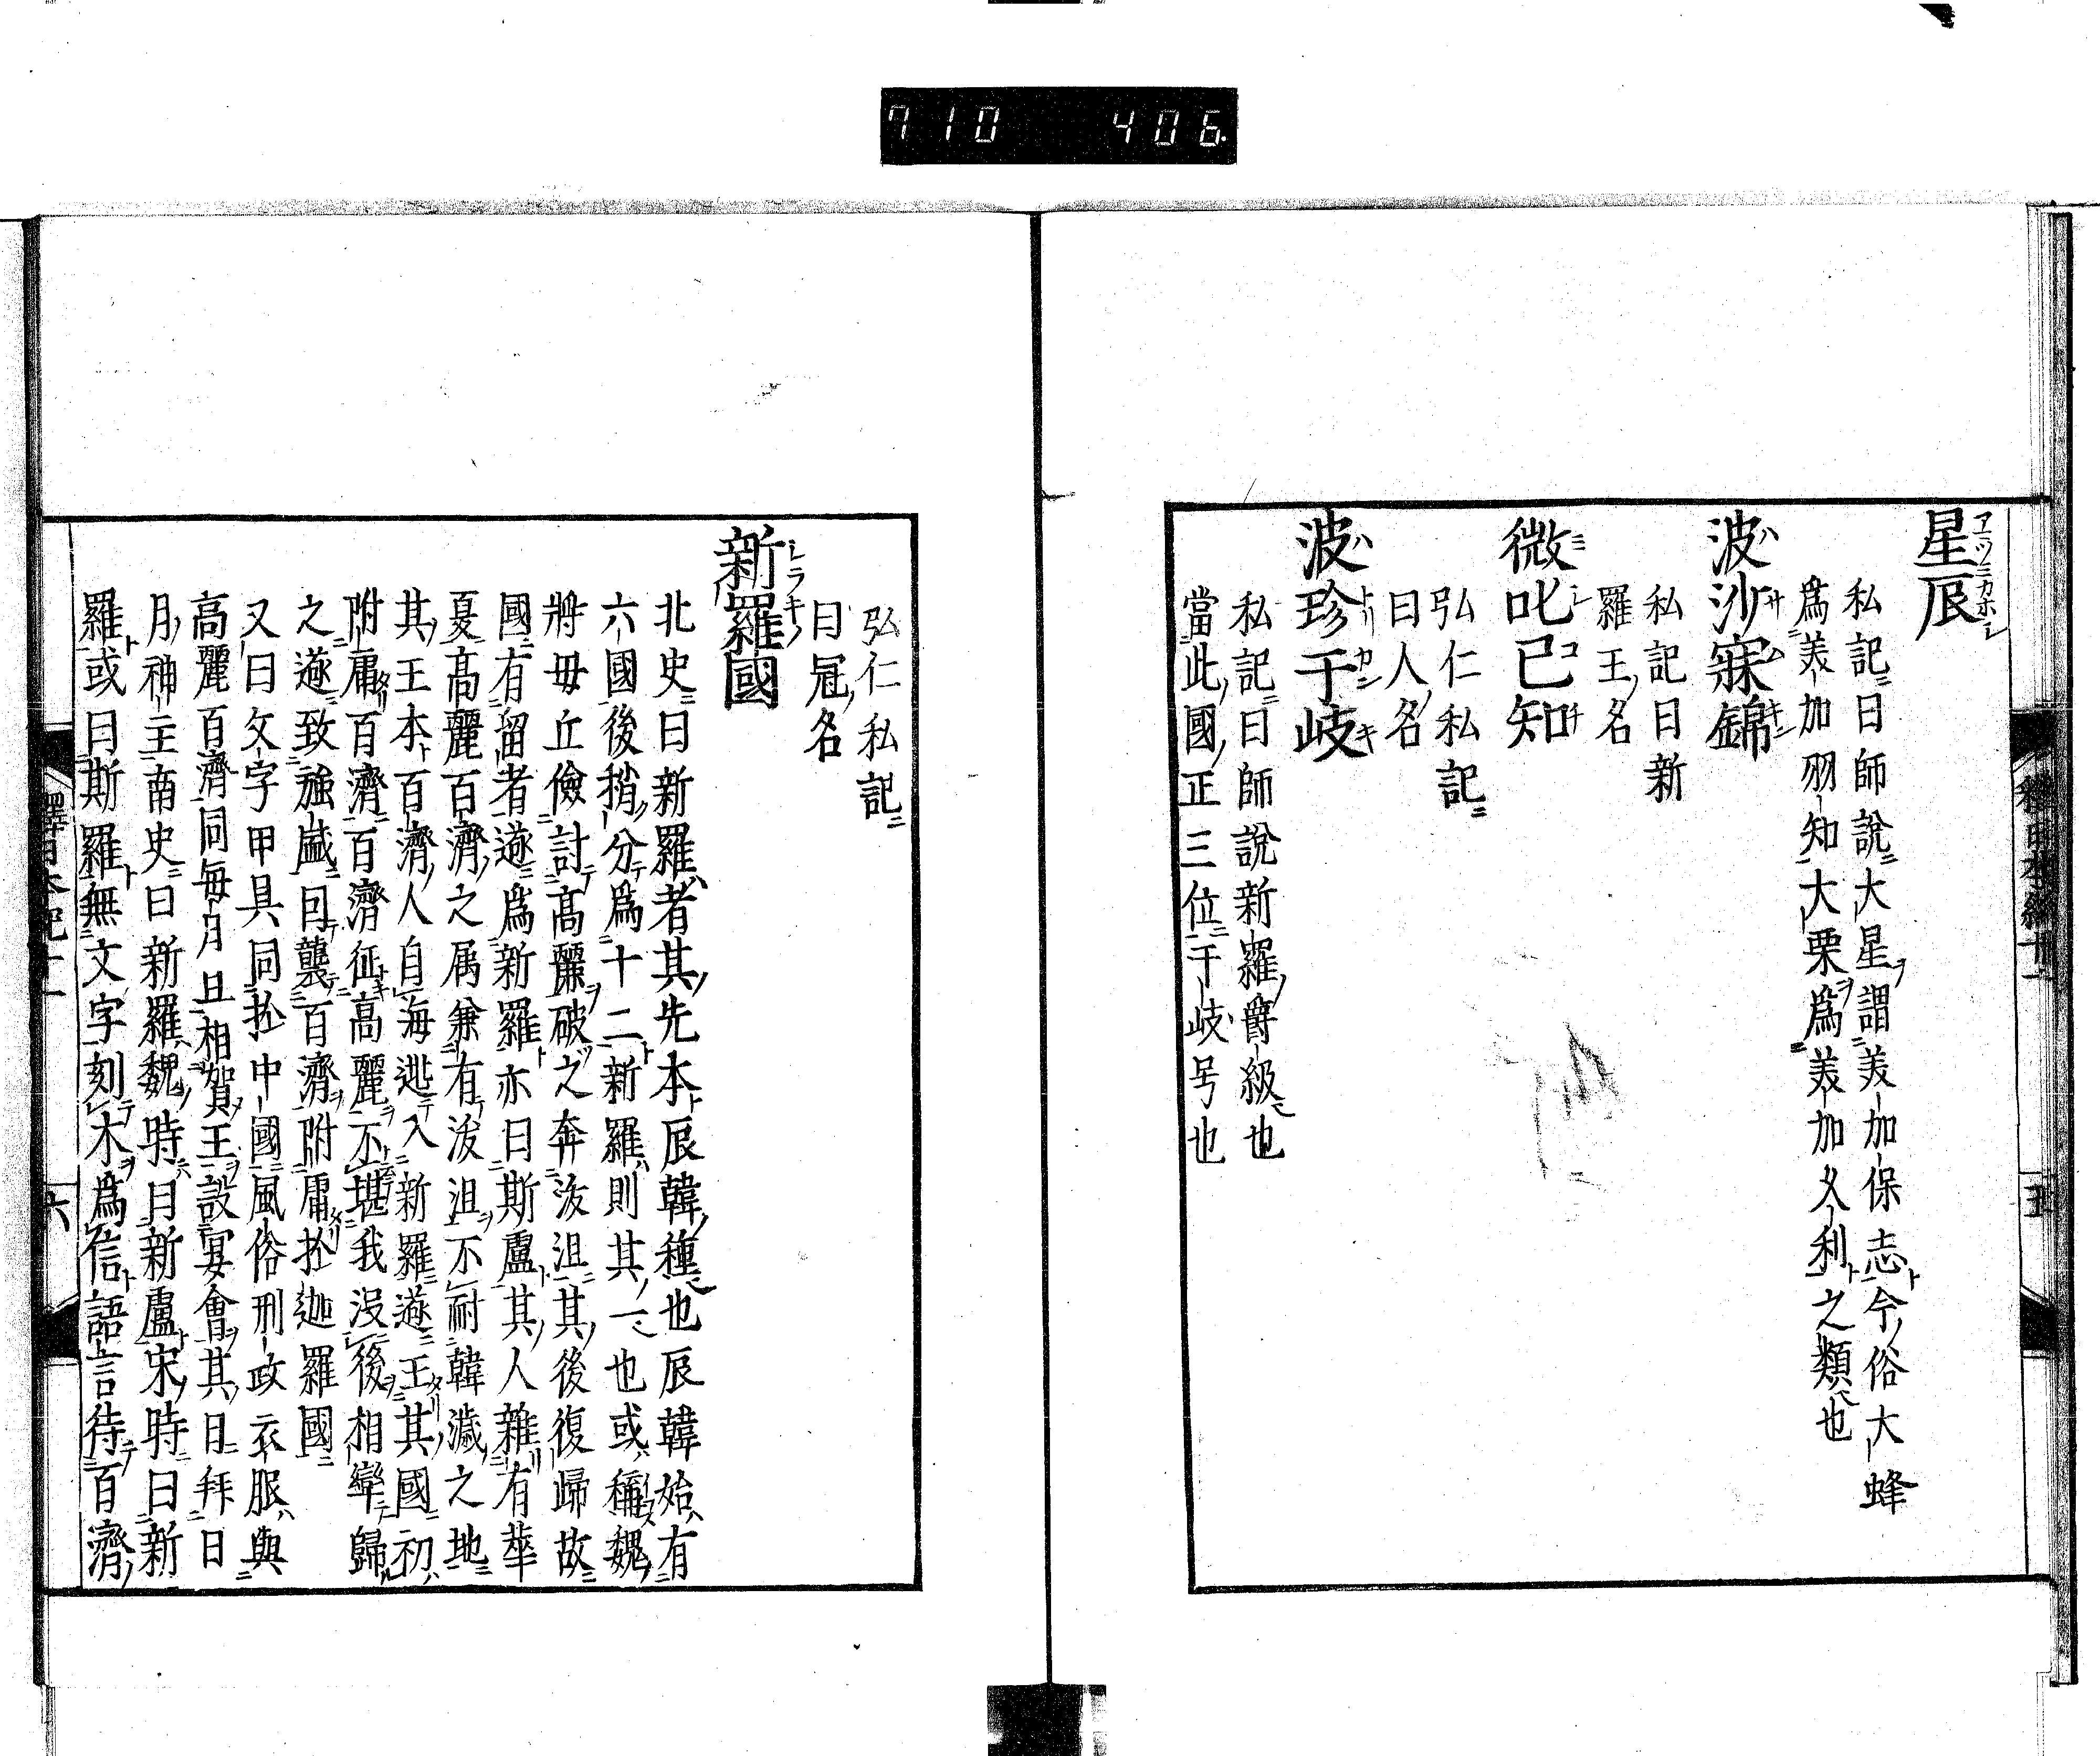 710 406
星辰
私記曰師說大星謂美加保志今俗大蜂
爲美加羽知大栗爲美加久利之類也
波沙寐錦
私記曰新
羅王名
微叱己知
弘仁私記
曰人名
波珍干岐
私記曰師說新羅爵級也
當此國正三位干岐号也
五
弘仁私記
曰冠名
新羅國
北史曰新羅者其先本辰韓種也辰韓始有
六國後稍分爲十二新羅則其一也或稱魏
將毋丘儉討高麗破之奔沃沮其後復歸故
國有留者遂爲新羅亦曰斯盧其人雜有華
夏高麗百濟之属兼有沃沮不耐韓濊之地
其王本百濟人自海逃入新羅遂王其國初
附庸百濟百濟征高麗不堪我役後相率歸
之遂致强盛因襲百濟附庸於迦羅國
又曰文字甲具同於中國風俗刑政衣服與
高麗百濟同毎月旦相賀王設宴會其日拜日
月神主南史曰新羅魏時曰新盧宋時曰新
羅或曰斯羅無文字刻木爲信語言待百濟
釋日本紀十一
六